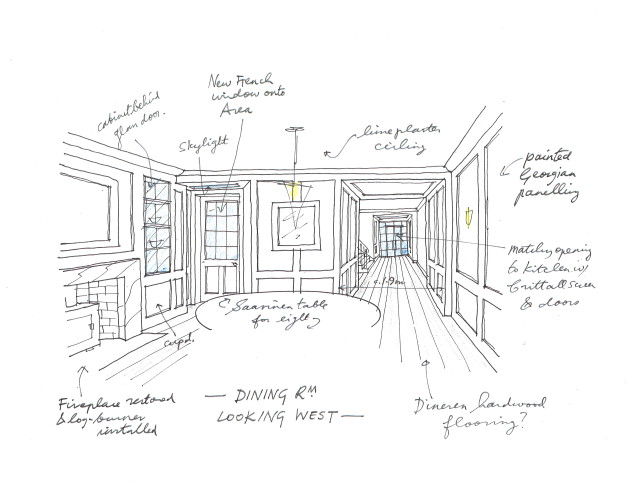 New French
window onto
Area
cabinet behind
glass door.
Skylight
lime plaster
cieling
painted
Georgian
panelling
matching opening
to kitchen w/
Crittall screen
& doors
Saarinen table
for eight
cupd.
Fireplace restored
& log-burner
installed
— DINING RM
LOOKING WEST —
Dineren hardwood
flooring?